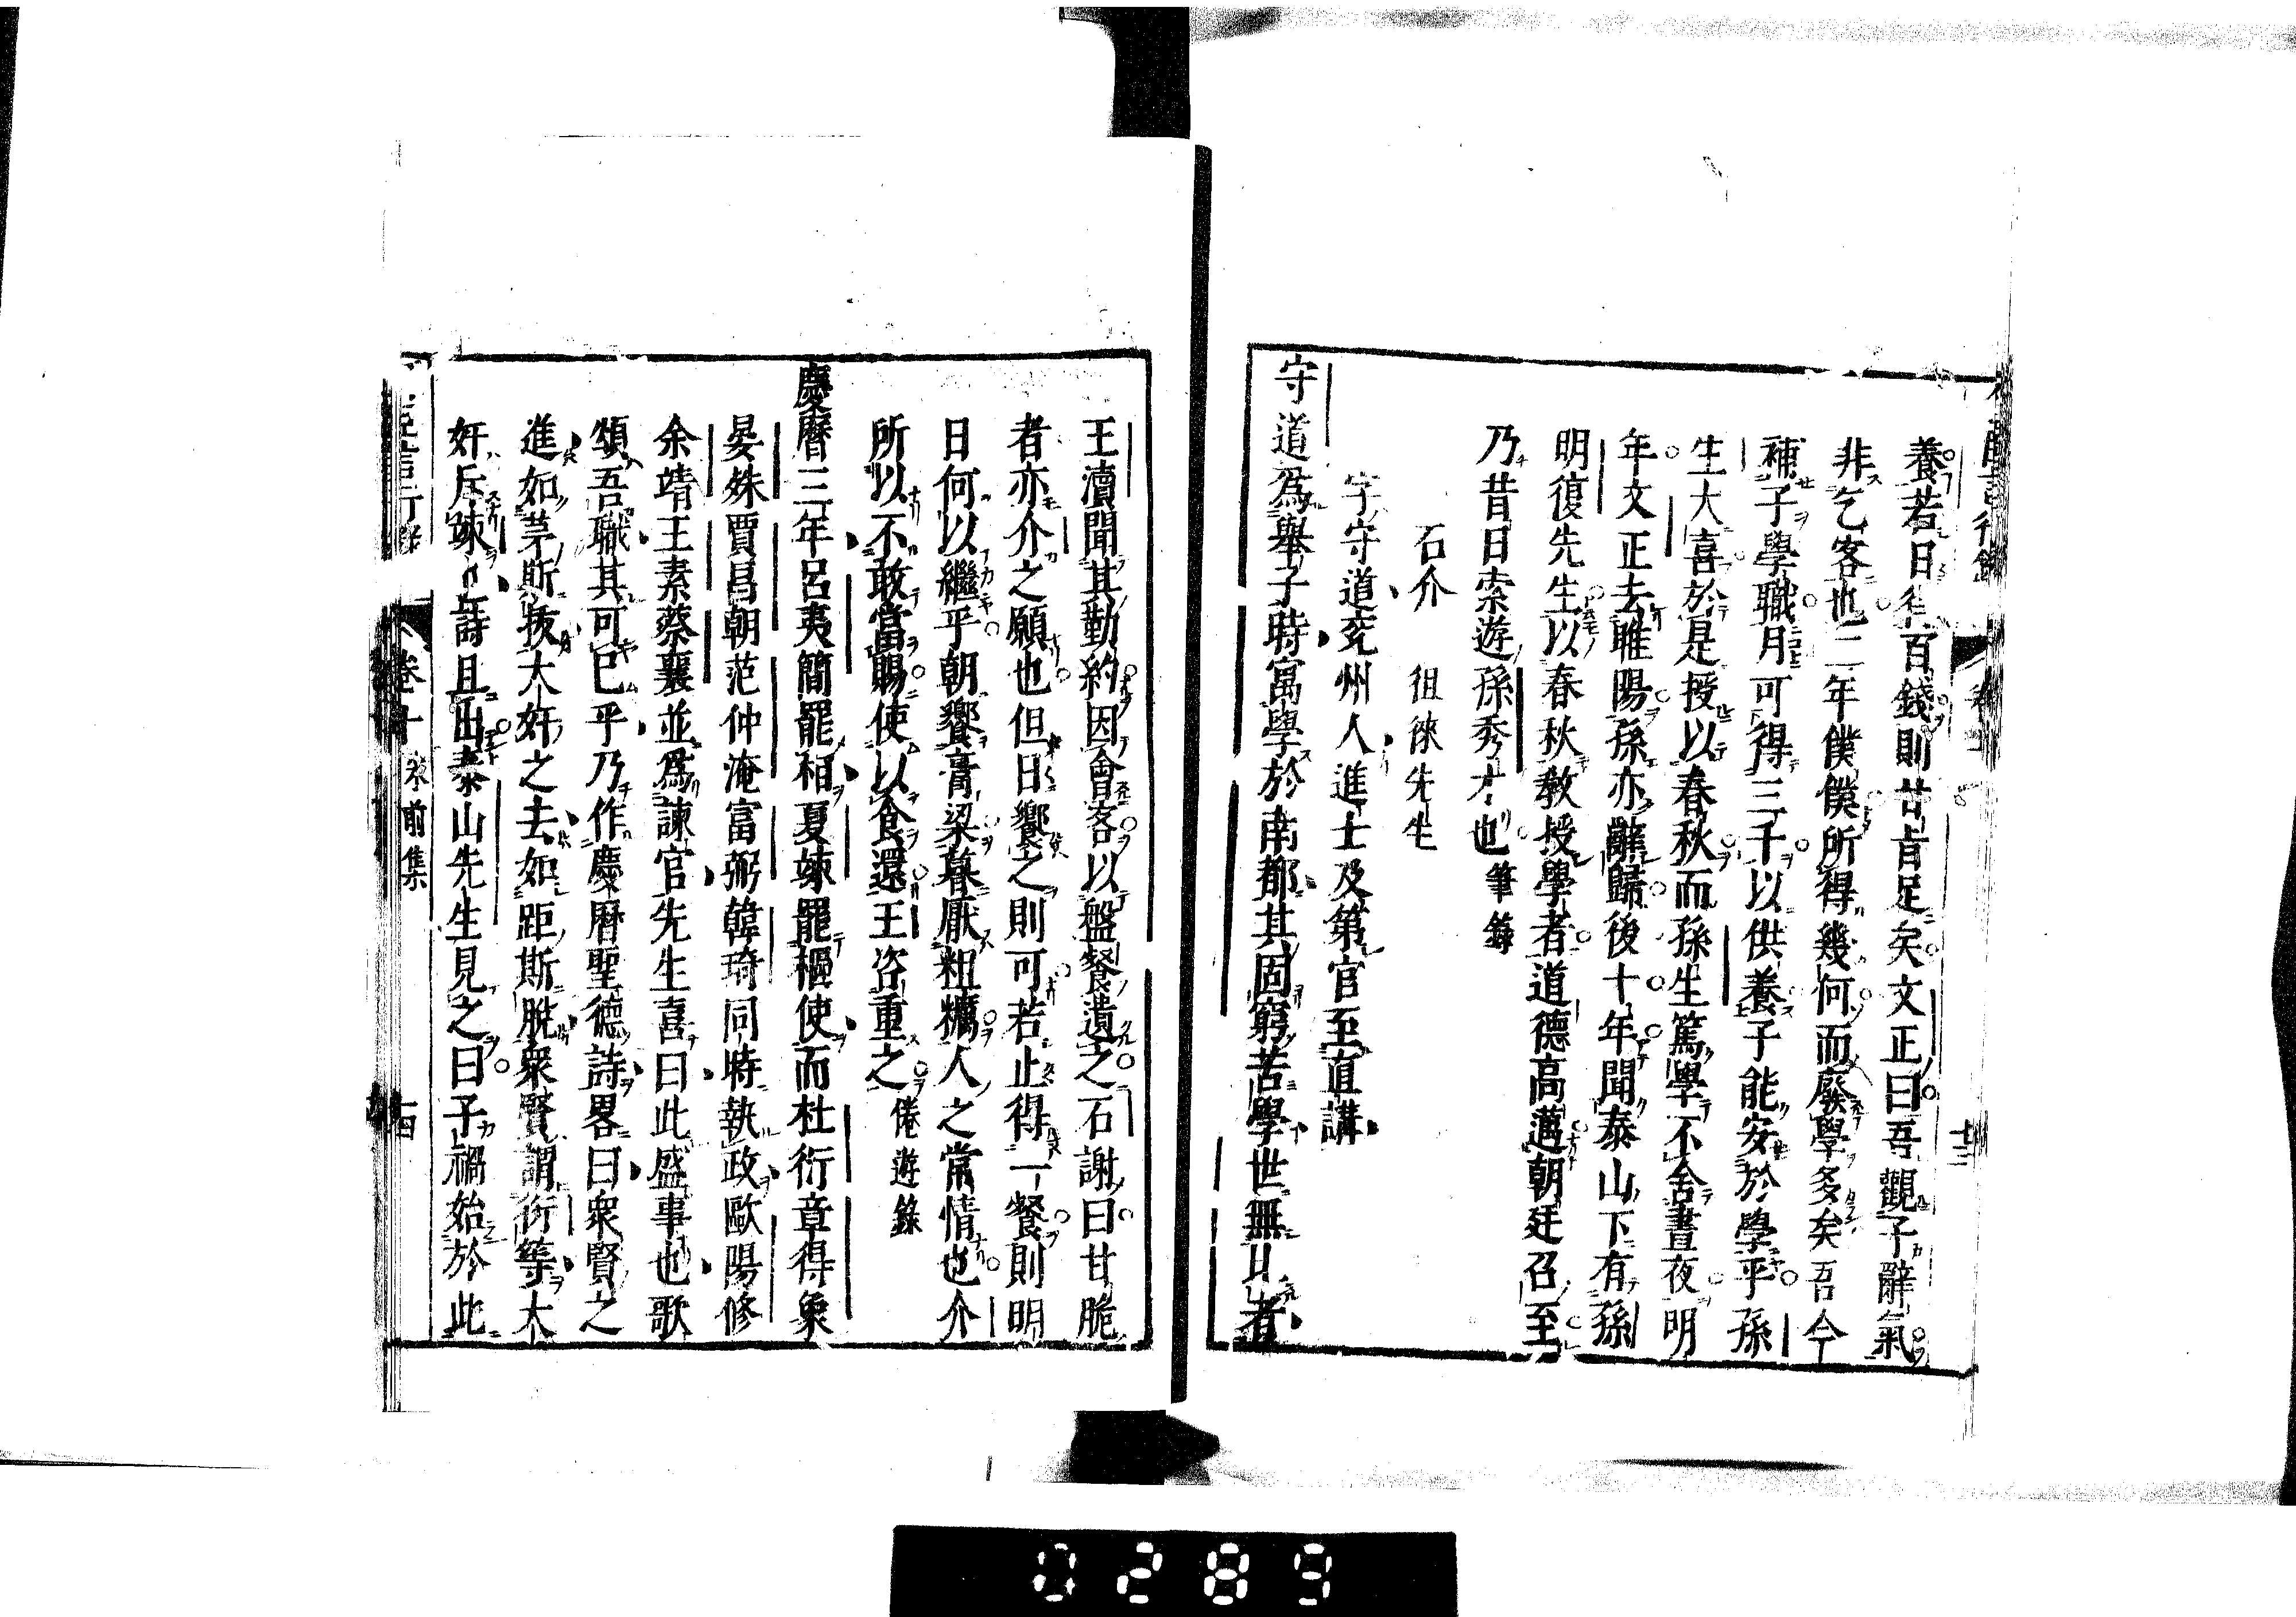 養若日得百錢則甘旨足矣文正曰吾觀子辭氣
非乞客也二年僕僕所得幾何而廢學多矣吾今
補子學職月可得三千以供養子能安於學乎孫
生大喜於是授以春秋而孫生篤學不舍晝夜明
年文正去睢陽孫亦辭歸後十年聞泰山下有孫
明復先生以春秋教授學者道德高邁朝廷召至
乃昔日索遊孫秀才也筆錄
石介 徂徠先生
字守道兗州人進士及第官至直講
守道爲舉子時寓學於南都其固窮苦學世無比者
王瀆聞其勤約因會客以盤餐遺之石謝曰甘脆
者亦介之願也但日饗之則可若止得一餐則明
日何以繼乎朝饗膏粱暮厭粗糲人之常情也介
所以不敢當賜使以食還王咨重之倦遊錄
慶曆三年呂夷簡罷相夏竦罷樞使而杜衍章得象
晏殊賈昌朝范仲淹富弼韓琦同時執政歐陽修
余靖王素蔡襄並爲諫官先生喜曰此盛事也歌
頌吾職其可已乎乃作慶曆聖德詩畧曰衆賢之
進如茅斯拔大奸之去如距斯脫衆賢謂衍等大
奸斥竦也詩且出泰山先生見之曰子禍始於此
卷十 前集
十四
0289